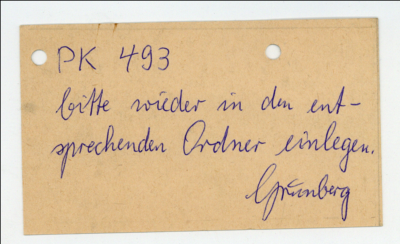 PK 493
bitte wieder in den ent-
sprechenden Ordner einlegen.
Grünberg